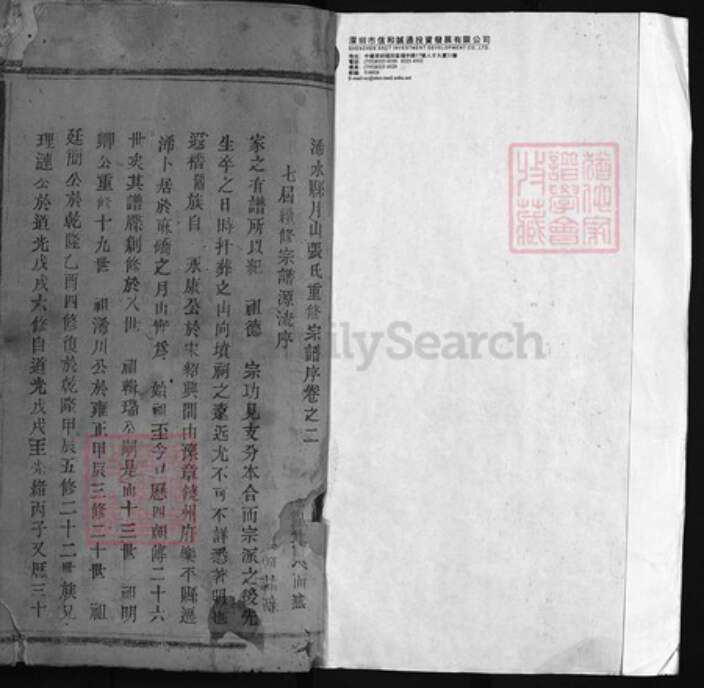 浠水縣月山張氏重修宗譜序卷之二
七屆續修宗譜源流序
家之有譜所以紀 祖德 宗功見支分本合而宗派之後先
生卒之日時扞葬之山向墳祠之遼远尤不可不詳悉著明也
族自 永康公於宋紹興間由豫章饒州府樂平縣遷
浠卜居於麻橋之月山實為 始祖至今已歷四朝傳二十六
世矣其譜牒創修於八世 祖輯瑞公嗣是而十三世 祖明
卿公重修十九世 祖濟川公於雍正甲辰三修二十世 祖
廷簡公於乾隆乙酉四修復於乾隆甲辰五修二十二世族兄
理漣公於道光戊戌六修自道光戊戌至光緒丙子又歷三十
深圳市信和誠通投資發展有限公司
SHENZHEN XHCT INVESTMENT DEVELOPMENT CO.,LTD.
猶他家
譜學會
收藏
FamilySearch